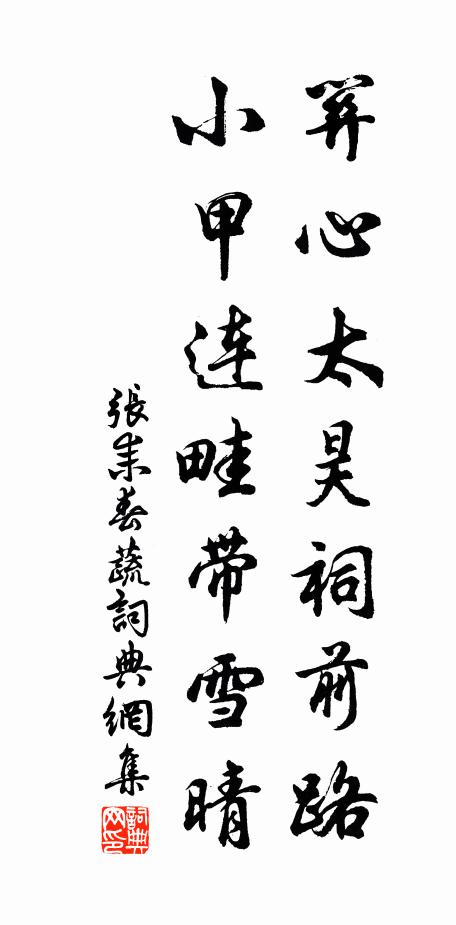 关心太昊祠前路
小甲連畦带雪晴
張耒春蔬詞典網集
詞典网印